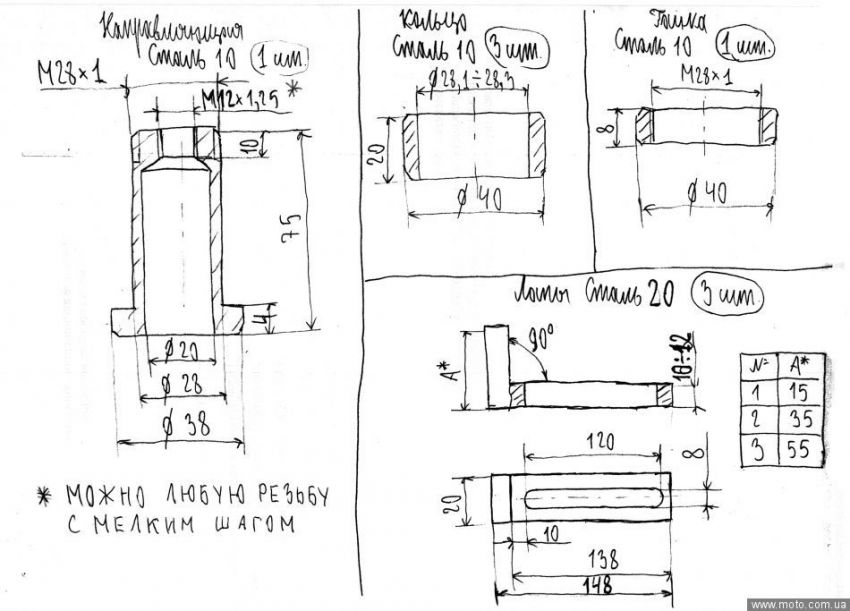 Направляющая
Сталь 10 1 шт.
M28×1
M12×1,25 *
10
75
4
Ø20
Ø28
Ø38
* МОЖНО ЛЮБУЮ РЕЗЬБУ
С МЕЛКИМ ШАГОМ
Кольцо
Сталь 10 3 шт.
Ø28,1÷28,3
20
Ø40
Гайка
Сталь 10 1 шт.
M28×1
8
Ø40
Лапы Сталь 20 3 шт.
90°
A*
10÷12
120
8
20
10
138
148
№ A*
1 15
2 35
3 55
www.moto.com.ua